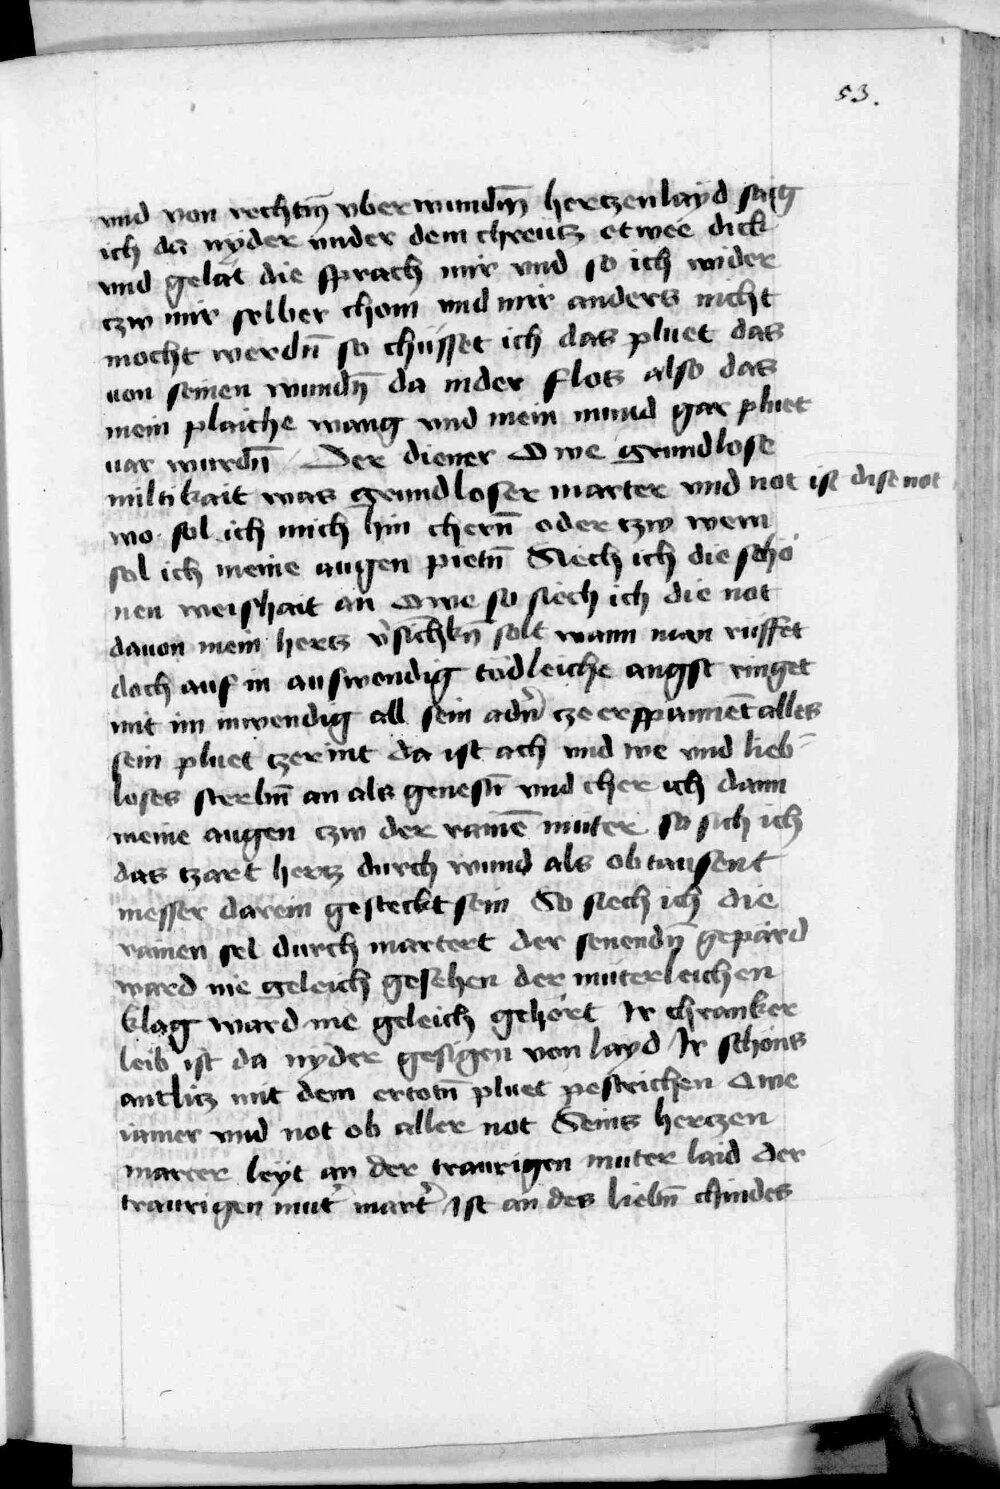 53.
vnd von rechtm̄ vberwundn̄ hertzenlayd saig
ich da nyder vnder dem chreutz etwee dick
vnd gelat die sprach mir vnd so ich wider
czw mir selber chom vnd mir anders nicht
mocht werdn̄ so chüsset ich das pluet das
von seinen wundn̄ da nider flos also das
mein plaiche wang vnd mein mund gar pluet
uar wurdn̄ Der diener Owe grundlose
miltikait was grundloser marter vnd not ist dise not
wo sol ich mich hin chern̄ oder tzw wem
sol ich meine augen pietn̄ Siech ich die schö
nen weishait an Owe so siech ich die not
dauon mein hertz v̉sichkn̄ solt wann man rüffet
doch auf in auswendig tödleiche angst ringet
mit im inwendig all sein adn̉ cze erspannēt alles
sein pluet tzerint da ist ach vnd we vnd lieb
loses sterbn̄ an als genesn̄ vnd cher ich dann
meine augen czw der rainē muter so sich ich
das tzart hertz durch wund als ob tausent
messer darein gesteckt sein So siech ich die
rainen sel durch martert der senendn̄ gepärd
ward nie geleich gesehen der müterleichen
klag ward nie geleich gehört Ir chranker
leib ist da nyder gesigen von layd Ir schöns
antlicz mit dem ertotn̄ pluet pestrichen Owe
iamer vnd not ob aller not Seins hertzen
marter leyt an der traurigen muter laid der
traurigen mut̉ mart̉ Ist an des liebn̄ chindes